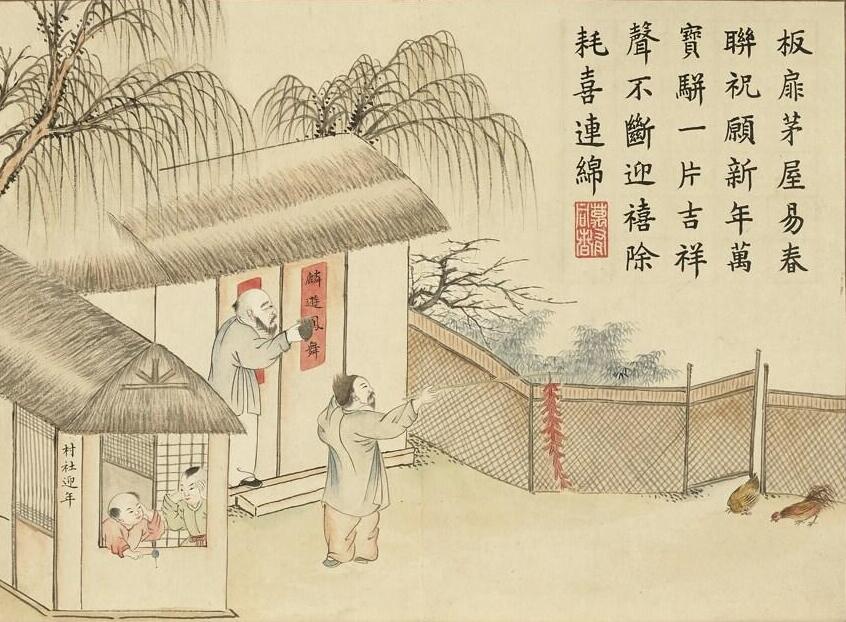 板扉茅屋易春
聯祝願新年萬
寶駢一片吉祥
聲不斷迎禧除
耗喜連綿
麟遊鳳舞
村社迎年